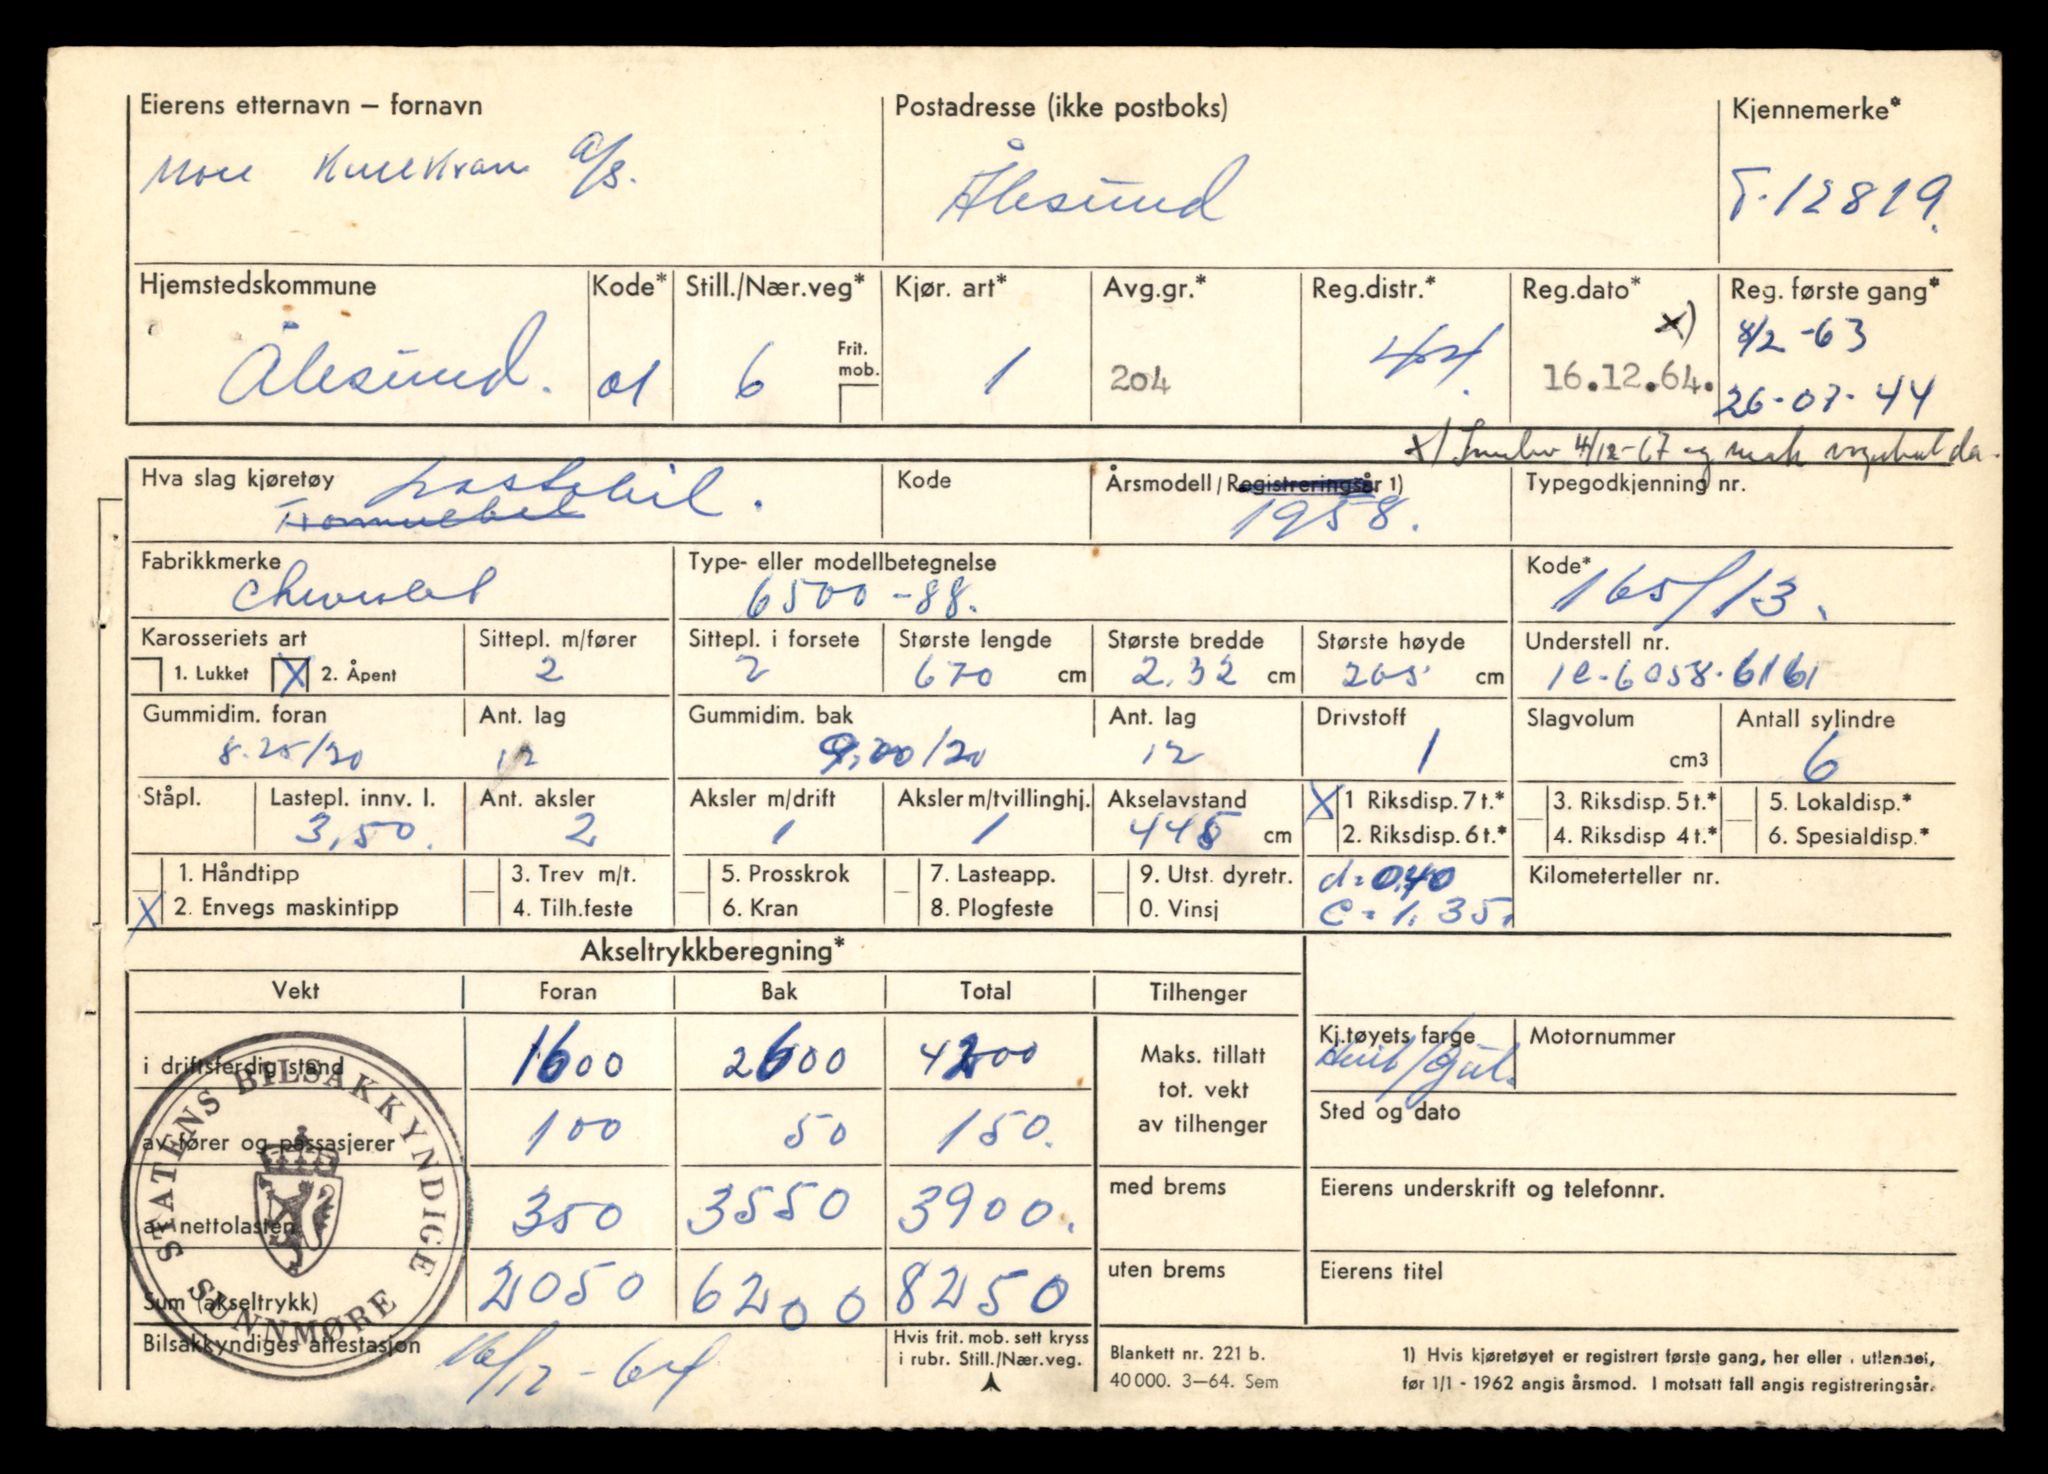 Eierens etternavn – fornavn
Postadresse (ikke postboks)
Kjennemerke*
a/s.
Ålesund
T-12819.
Hjemstedskommune
Kode*
Still./Nær.veg*
Kjør. art*
Avg.gr.*
Reg.distr.*
Reg.dato*
Reg. første gang*
Ålesund.
01
6
Frit. mob.
1
204
44.
x)
16.12.64.
8/2 -63
26-07-44
x) 4/12-67 og
Hva slag kjøretøy
Lastebil.
Kode
Årsmodell / Registreringsår 1)
1958.
Typegodkjenning nr.
Fabrikkmerke
Chevrolet
Type- eller modellbetegnelse
6500-88.
Kode*
165/13.
Karosseriets art
1. Lukket X 2. Åpent
Sittepl. m/fører
2
Sittepl. i forsete
2
Største lengde
670 cm
Største bredde
2.32 cm
Største høyde
265 cm
Understell nr.
1C-6058-6161
Gummidim. foran
8.25/20
Ant. lag
12
Gummidim. bak
9.00/20
Ant. lag
12
Drivstoff
1
Slagvolum
cm3
Antall sylindre
6
Ståpl.
Lastepl. innv. l.
3,50.
Ant. aksler
2
Aksler m/drift
1
Aksler m/tvillinghj.
1
Akselavstand
445 cm
X 1 Riksdisp. 7 t.*
2. Riksdisp. 6 t.*
3. Riksdisp. 5 t.*
4. Riksdisp 4 t.*
5. Lokaldisp.*
6. Spesialdisp.*
1. Håndtipp
X 2. Envegs maskintipp
3. Trev m/t.
4. Tilh.feste
5. Prosskrok
6. Kran
7. Lasteapp.
8. Plogfeste
9. Utst. dyretr.
0. Vinsj
d=0,40
C=1.35.
Kilometerteller nr.
Akseltrykkberegning*
Vekt Foran Bak Total Tilhenger
i driftsferdig stand 1600 2600 4200
av fører og passasjerer 100 50 150.
av nettolasten 350 3550 3900.
Sum (akseltrykk) 2050 6200 8250
Maks. tillatt
tot. vekt
av tilhenger
med brems
uten brems
Kj.tøyets farge
Hvit/Gul.
Motornummer
Sted og dato
Eierens underskrift og telefonnr.
Eierens titel
STATENS BILSAKKYNDIGE
SUNNMØRE
Bilsakkyndiges attestasjon
16/12-64
Hvis frit. mob. sett kryss
i rubr. Still./Nær.veg.
Blankett nr. 221 b.
40 000. 3–64. Sem
1) Hvis kjøretøyet er registrert første gang, her eller i utlandet,
før 1/1 - 1962 angis årsmod. I motsatt fall angis registreringsår.